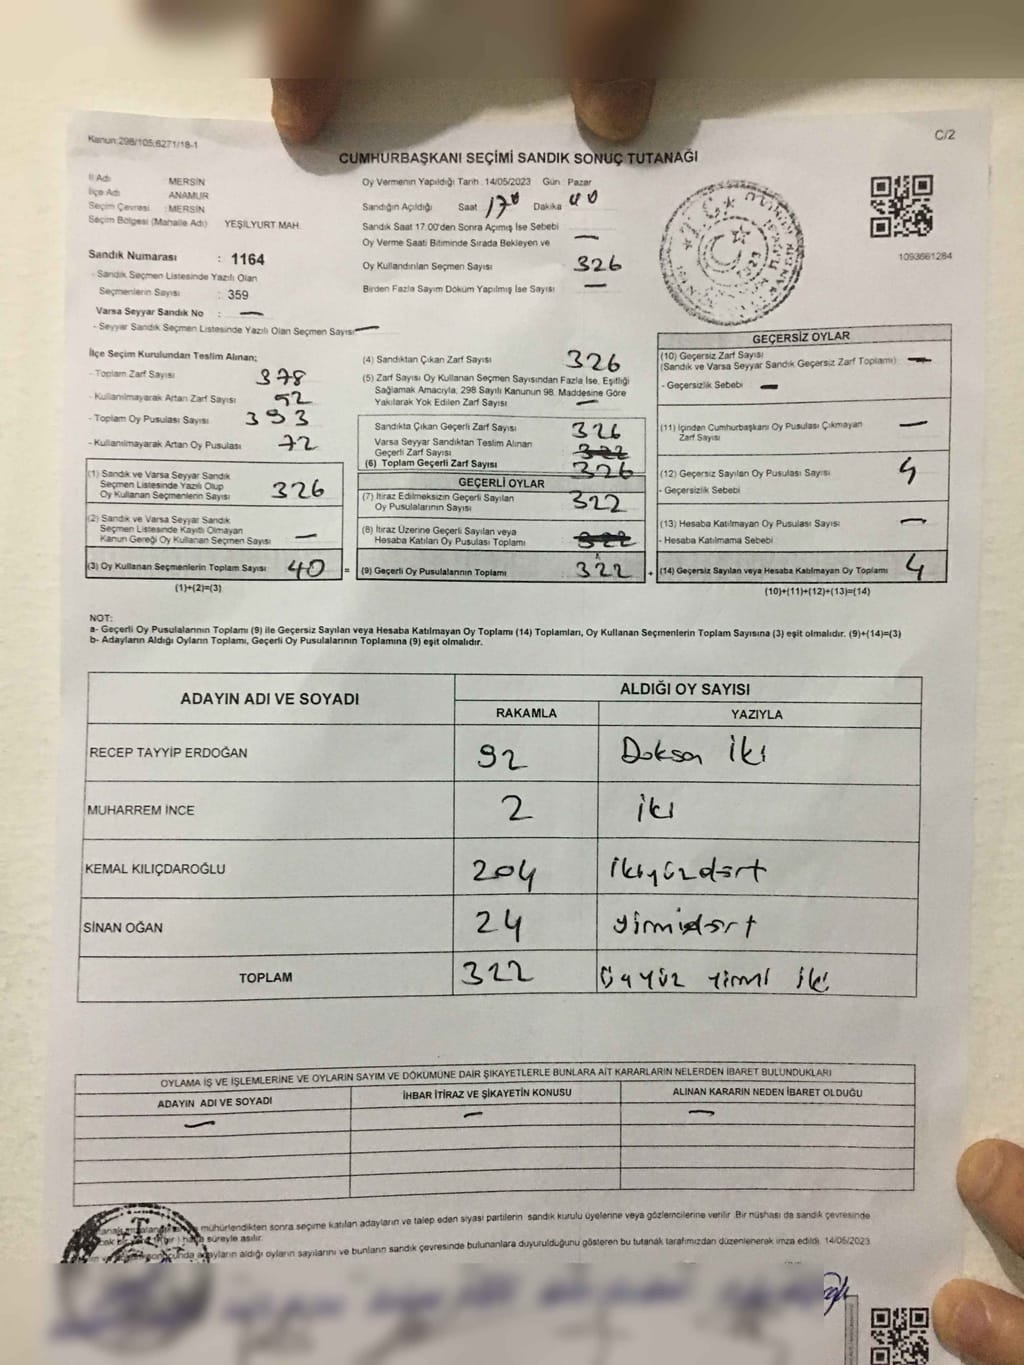 Kanun:298/105;6271/18-1
C/2
CUMHURBAŞKANI SEÇİMİ SANDIK SONUÇ TUTANAĞI
İl Adı MERSİN
İlçe Adı ANAMUR
Seçim Çevresi :MERSİN
Seçim Bölgesi (Mahalle Adı) YEŞİLYURT MAH.
Sandık Numarası : 1164
- Sandık Seçmen Listesinde Yazılı Olan
Seçmenlerin Sayısı : 359
Varsa Seyyar Sandık No : —
- Seyyar Sandık Seçmen Listesinde Yazılı Olan Seçmen Sayısı —
Oy Vermenin Yapıldığı Tarih 14/05/2023 Gün Pazar
Sandığın Açıldığı Saat 17 Dakika
Sandık Saat 17.00'den Sonra Açımış İse Sebebi
Oy Verme Saati Bitiminde Sırada Bekleyen ve —
Oy Kullandırılan Seçmen Sayısı 326
Birden Fazla Sayım Döküm Yapılmış İse Sayısı —
1093661284
İlçe Seçim Kurulundan Teslim Alınan;
- Toplam Zarf Sayısı 378
- Kullanılmayarak Artan Zarf Sayısı 52
- Toplam Oy Pusulası Sayısı 393
- Kullanılmayarak Artan Oy Pusulası 72
(1) Sandık ve Varsa Seyyar Sandık
Seçmen Listesinde Yazılı Olup
Oy Kullanan Seçmenlerin Sayısı 326
(2) Sandık ve Varsa Seyyar Sandık
Seçmen Listesinde Kayıtlı Olmayan
Kanun Gereği Oy Kullanan Seçmen Sayısı —
(3) Oy Kullanan Seçmenlerin Toplam Sayısı 40 =
(1)+(2)=(3)
(4) Sandıktan Çıkan Zarf Sayısı 326
(5) Zarf Sayısı Oy Kullanan Seçmen Sayısından Fazla İse, Eşitliği
Sağlamak Amacıyla, 298 Sayılı Kanunun 98. Maddesine Göre
Yakılarak Yok Edilen Zarf Sayısı —
Sandıkta Çıkan Geçerli Zarf Sayısı 326
Varsa Seyyar Sandıktan Teslim Alınan
Geçerli Zarf Sayısı 322
(6) Toplam Geçerli Zarf Sayısı 326
GEÇERLİ OYLAR
(7) İtiraz Edilmeksizin Geçerli Sayılan
Oy Pusulalarının Sayısı 322
(8) İtiraz Üzerine Geçerli Sayılan veya
Hesaba Katılan Oy Pusulası Toplamı 322
(9) Geçerli Oy Pusulalarının Toplamı : 322 +
GEÇERSİZ OYLAR
(10) Geçersiz Zarf Sayısı
(Sandık ve Varsa Seyyar Sandık Geçersiz Zarf Toplamı) —
- Geçersizlik Sebebi —
(11) İçinden Cumhurbaşkanı Oy Pusulası Çıkmayan
Zarf Sayısı —
(12) Geçersiz Sayılan Oy Pusulası Sayısı 4
- Geçersizlik Sebebi
(13) Hesaba Katılmayan Oy Pusulası Sayısı —
- Hesaba Katılmama Sebebi
(14) Geçersiz Sayılan veya Hesaba Katılmayan Oy Toplamı 4
(10)+(11)+(12)+(13)=(14)
NOT:
a- Geçerli Oy Pusulalarının Toplamı (9) ile Geçersiz Sayılan veya Hesaba Katılmayan Oy Toplamı (14) Toplamları, Oy Kullanan Seçmenlerin Toplam Sayısına (3) eşit olmalıdır. (9)+(14)=(3)
b- Adayların Aldığı Oyların Toplamı, Geçerli Oy Pusulalarının Toplamına (9) eşit olmalıdır.
ADAYIN ADI VE SOYADI ALDIĞI OY SAYISI
RAKAMLA YAZIYLA
RECEP TAYYİP ERDOĞAN 92 Doksan İki
MUHARREM İNCE 2 İki
KEMAL KILIÇDAROĞLU 204 İkiyüzdört
SİNAN OĞAN 24 yirmidört
TOPLAM 322 Üçyüz yirmi iki
OYLAMA İŞ VE İŞLEMLERİNE VE OYLARIN SAYIM VE DÖKÜMÜNE DAİR ŞİKAYETLERLE BUNLARA AİT KARARLARIN NELERDEN İBARET BULUNDUKLARI
ADAYIN ADI VE SOYADI İHBAR İTİRAZ VE ŞİKAYETİN KONUSU ALINAN KARARIN NEDEN İBARET OLDUĞU
— — —
mühürlendikten sonra seçime katılan adayların ve talep eden siyasi partilerin sandık kurulu üyelerine veya gözlemcilerine verilir. Bir nüshası da sandık çevresinde
süreyle asılır.
adayların aldığı oyların sayılarını ve bunların sandık çevresinde bulunanlara duyurulduğunu gösteren bu tutanak tarafımızdan düzenlenerek imza edildi. 14/05/2023